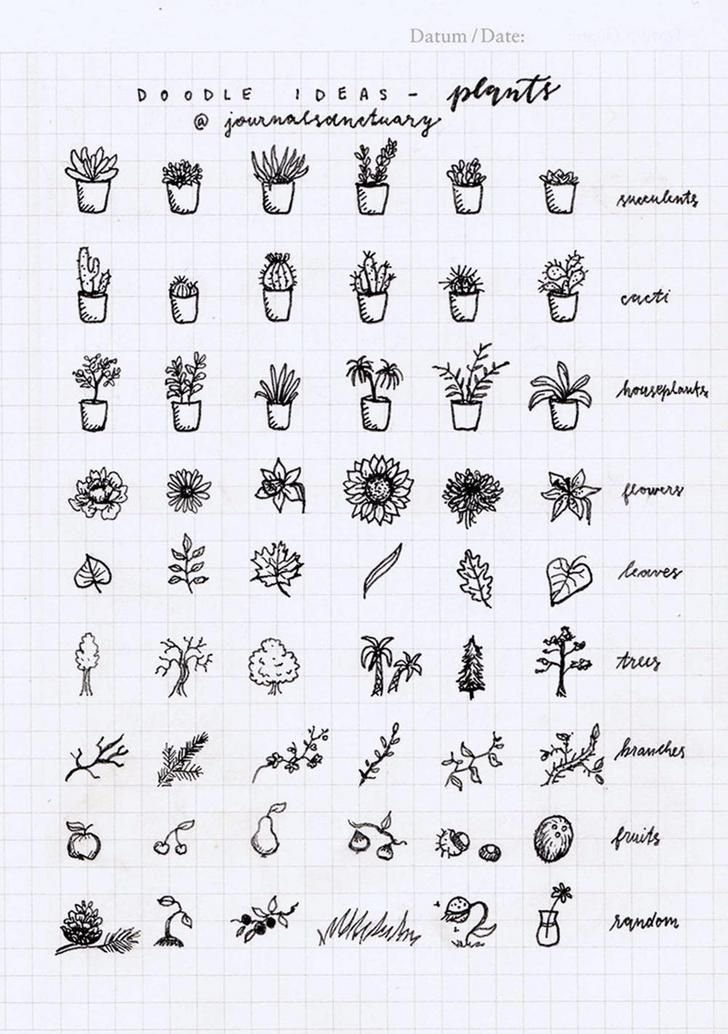 Datum / Date:
DOODLE IDEAS - plants
@ journalsanctuary
succulents
cacti
houseplants
flowers
leaves
trees
branches
fruits
random